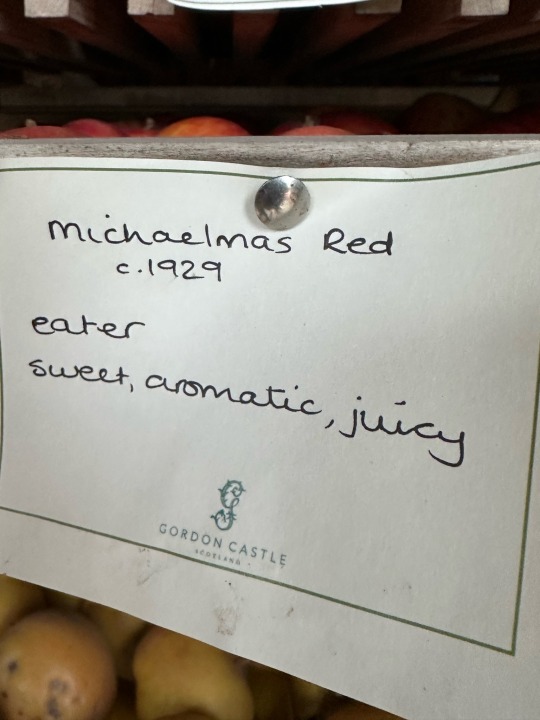 Michaelmas Red
c.1929
eater
sweet, aromatic, juicy
GORDON CASTLE
SCOTLAND